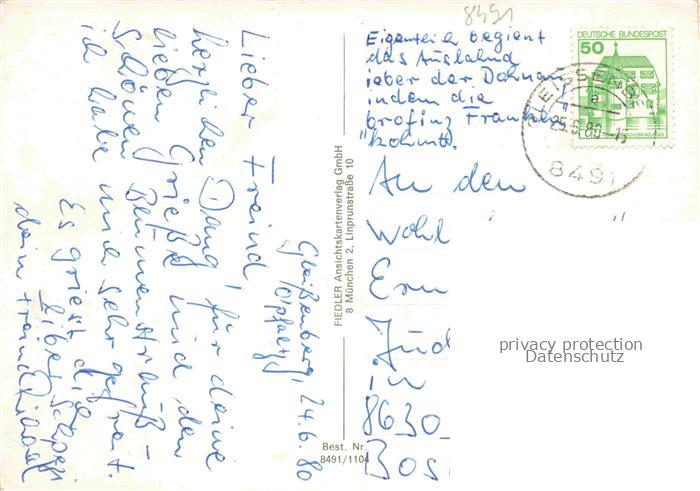 8491
Eigenteich begient
das Ausland
ieber der Donnau,
indem die
profinz Franken
kohmt.
DEUTSCHE BUNDESPOST
50
25.6.80-15
8491
An den
Wohl
Ern
Jud
in
8630
Bos
Gleißenberg, 24.6.80
Opfalz
Lieber Freind,
herzlichen Dank, für deine
lieben Grieße und den
schönen Blumenstrauß
ich habe mich sehr gefreit.
Es griest dich
dein Freind
FIEDLER Ansichtskartenverlag GmbH
8 München 2, Linprunstraße 10
Best. Nr.
8491/1104
privacy protection
Datenschutz